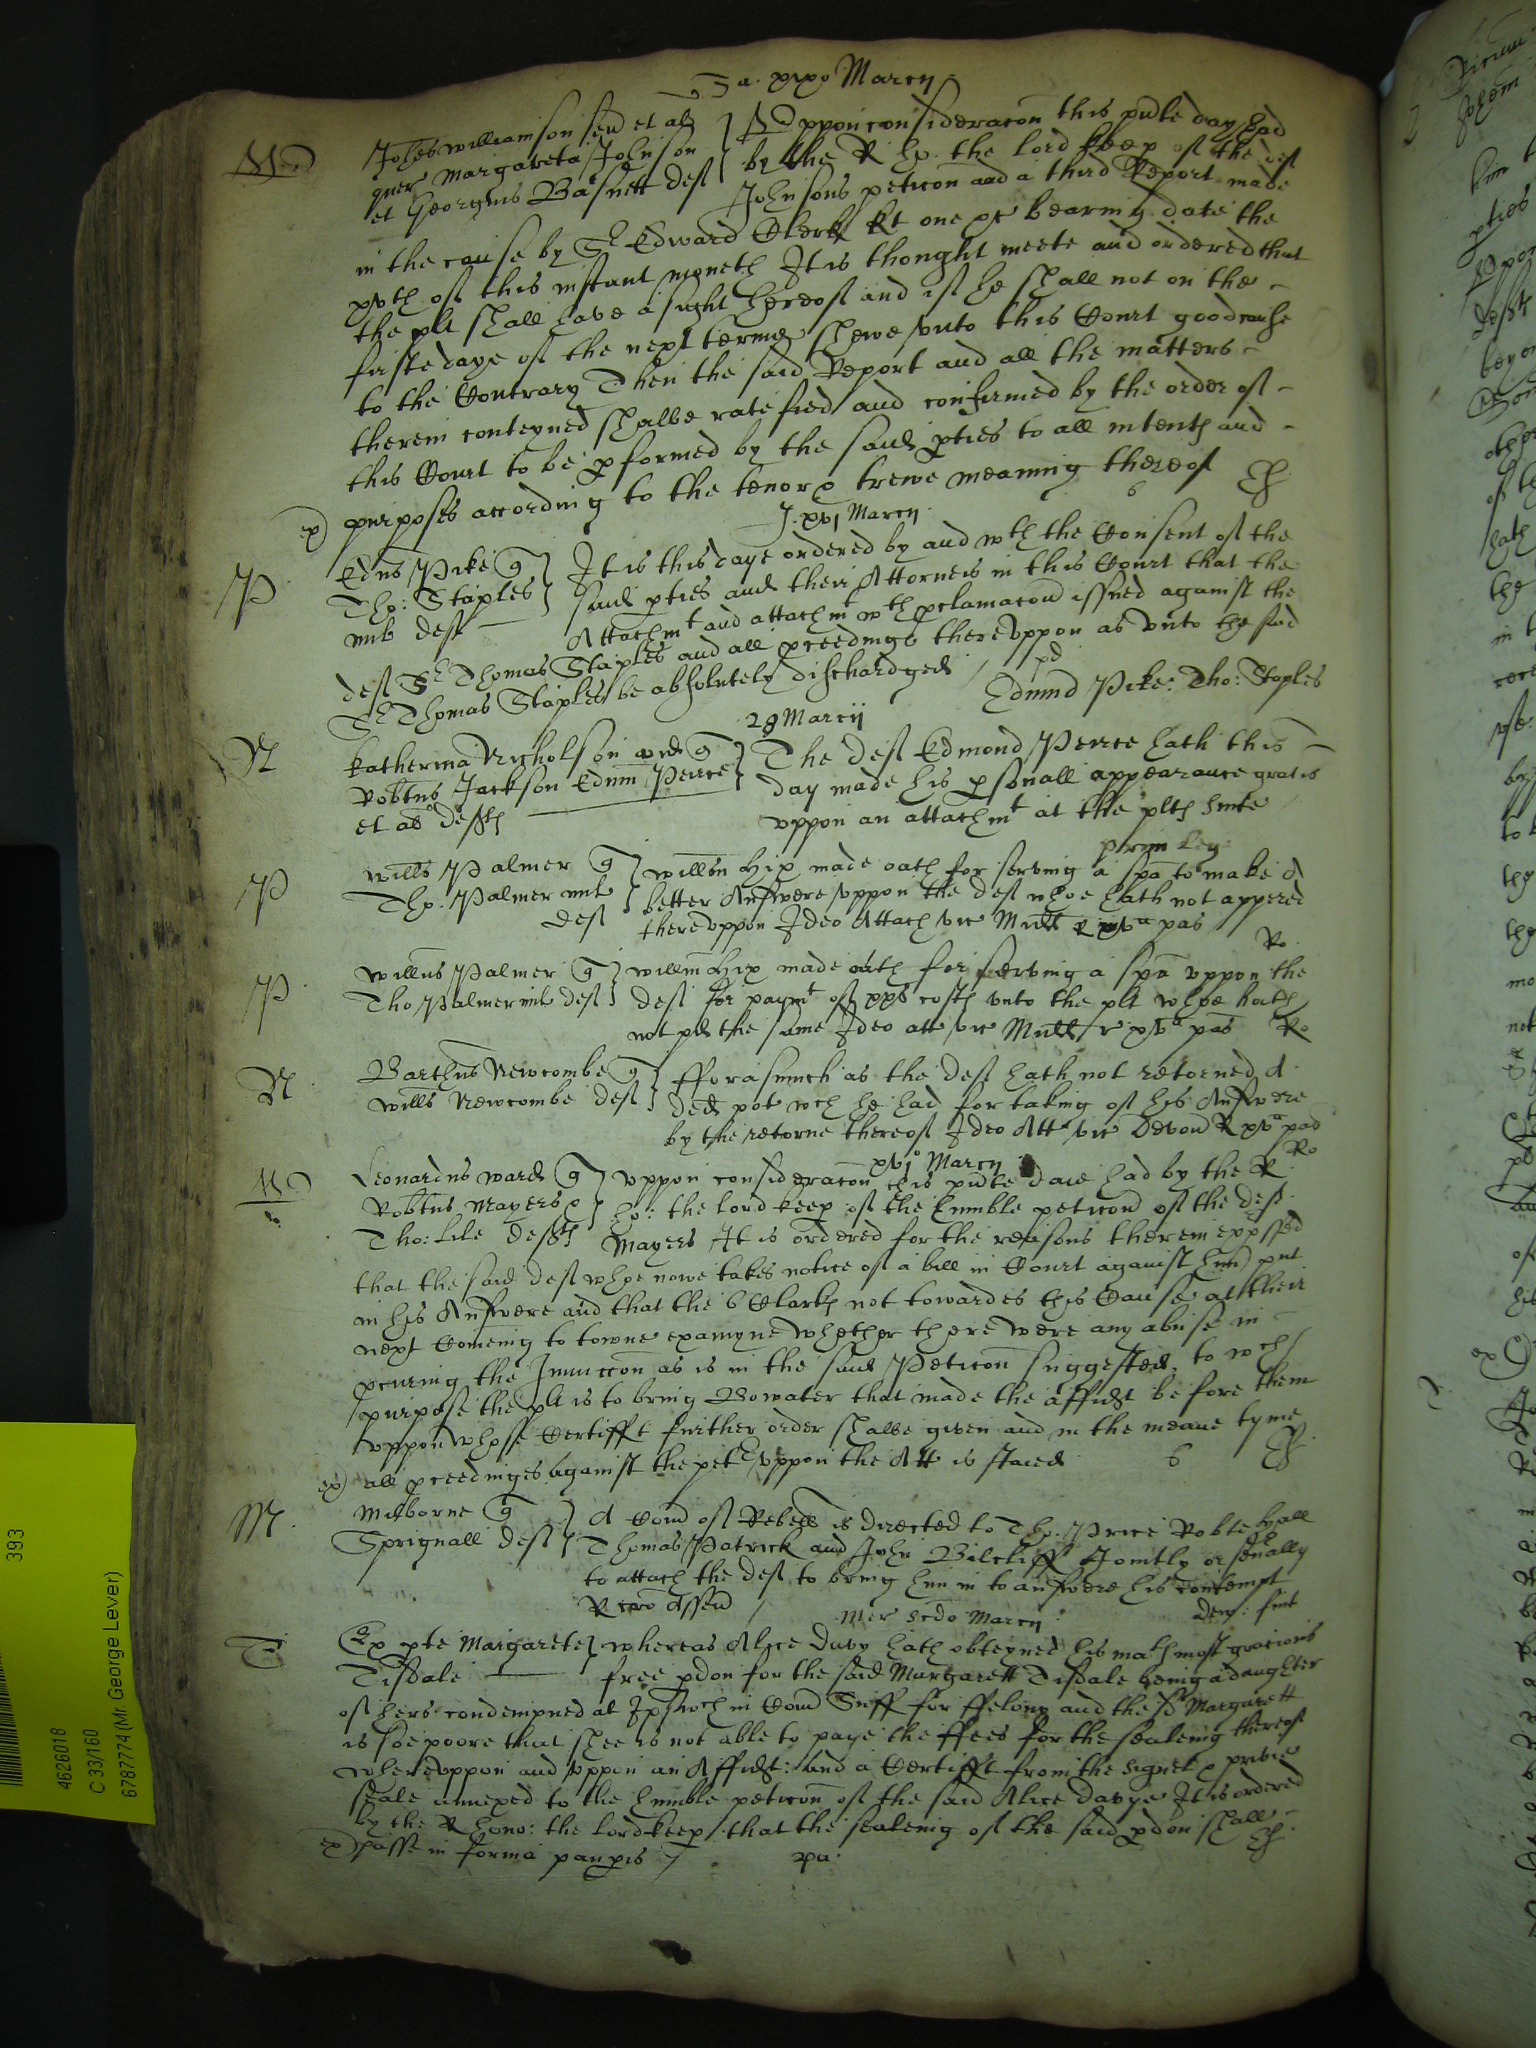 Sa. xixo Marcij
W
Johes Williamson sen et al
quer Margareta Johnson
et Georgius Basnett def
Uppon consideracon this pnte day had
by the R ho. the lord keep of the def
Johnsons peticon and a third Report made
in the cause by Sr Edward Clerk kt one &c bearing date the
xvth of this instant moneth It is thought meete and ordered that
the plt shall have a sight thereof and if he shall not on the
firste daye of the next terme shewe unto this Court good cause
to the Contrary Then the said Report and all the matters
therein conteyned shalbe ratefied and confirmed by the order of
this Court to be pformed by the said pties to all intents and
purposes according to the tenor & trewe meaning thereof
ex)
J. xvj Marcij
P
Edus Pike q
Tho: Staples
mil def
It is this daye ordered by and wth the Consent of the
said pties and their Attorneis in this Court that the
Attachmt and attachmt wth pclamacon issued against the
def Sr Thomas Staples and all pceedings thereuppon as unto the said
Sr Thomas Staples be absolutely dischardged
pd
Edmnd Pike: Tho: Staples
28 Marcij
N
Katherina Nicholson vid q
Robtus Jackson Edmn Peirce
et al defts
The def Edmond Peirce hath this
day made his psonall appearance gratis
uppon an attachmt at the plts suite
P
Wills Palmer q
Tho. Palmer mil
def
Willm Hix made oath for serving a spa to make a
better Answere uppon the def whoe hath not appered
thereuppon Ideo Attach vic Midd R xva pas
Ro
P
Willus Palmer q
Tho Palmer mil def
Willm Hix made oath for serving a spa uppon the
def for paymt of xxs costs unto the plt whoe hath
not pd the same Ideo att vic Midd r xva pas Ro
N
Barthus Newcombe q
Wills Newcombe def
Fforasmuch as the def hath not retorned a
ded pot wch he had for taking of his Answere
by the retorne thereof Ideo Att vic Devon R xva pas
Ro
xvjo Marcij
W
Leonardus Ward q
Robtus Mayers &
Tho: Lile defts
Uppon consideracon this pnte daie had by the R
ho: the lord keep of the humble peticon of the def
Mayers It is ordered for the reasons therein expssed
that the said def whoe nowe takes notice of a bill in Court against him put
in his Answere and that the 6 Clarks not towardes this Cause at their
next Comeing to towne examyne whether there were any abuse in
pcuring the Iniuccon as is in the said Peticon suggested. to wch
purpose the plt is to bring Bowater that made the affidt before them
uppon whose Certifft further order shalbe given and in the meane tyme
ex) all pceedinges against the petr uppon the Att is staied
M.
Milborne q
Sprignall def
A Com of Rebell is directed to Tho. Price Robte
Thomas Patrick and John Bilcliff Jointly or seually
to attach the def to bring him in to answere his contempt
Mer scdo Marcij
T
Ex pte Margarete
Tisdale
Whereas Alice Davy hath obteyned his mats most gracious
free pdon for the said Margarett Tisdale being a daughter
of hers condempned at Ipswch in Com Suff for ffelony and the sd Margarett
is soe poore that shee is not able to paye the ffees for the sealeing thereof
whereuppon and uppon an Affidt: and a Certifft from the signet & privie
seale annexed to the humble peticon of the said Alice Davye It is ordered
by the R hono: the lord keep: that the sealeing of the said pdon shall
ex) passe in forma paupis
393
4626018
C 33/160
6787774 (Mr. George Lever)